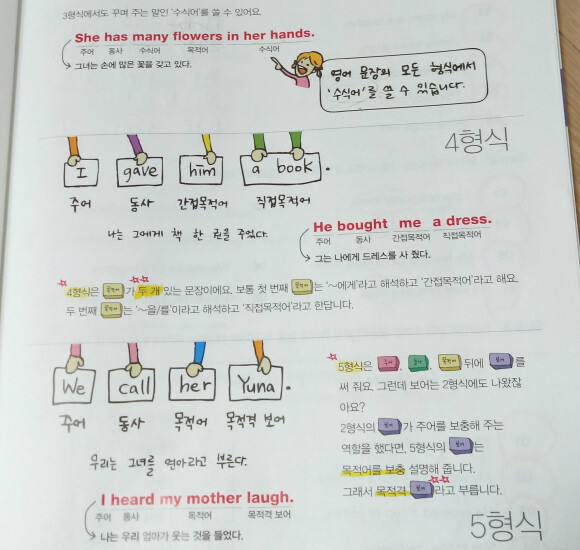 3형식에서도 꾸며 주는 말인 '수식어'를 쓸 수 있어요.
She has many flowers in her hands.
주어 동사 수식어 목적어 수식어
그녀는 손에 많은 꽃을 갖고 있다.
영어 문장의 모든 형식에서
'수식어'를 쓸 수 있습니다.
4형식
I gave him a book.
주어 동사 간접목적어 직접목적어
나는 그에게 책 한 권을 주었다.
He bought me a dress.
주어 동사 간접목적어 직접목적어
그는 나에게 드레스를 사 줬다.
4형식은 목적어 가 두 개 있는 문장이에요. 보통 첫 번째 목적어 는 '~에게'라고 해석하고 '간접목적어'라고 해요.
두 번째 목적어 는 '~을/를'이라고 해석하고 '직접목적어'라고 한답니다.
We call her Yuna.
주어 동사 목적어 목적격 보어
우리는 그녀를 연아라고 부른다.
I heard my mother laugh.
주어 동사 목적어 목적격 보어
나는 우리 엄마가 웃는 것을 들었다.
5형식은 주어, 동사, 목적어 뒤에 보어 를
써 줘요. 그런데 보어는 2형식에도 나왔잖
아요?
2형식의 보어 가 주어를 보충해 주는
역할을 했다면, 5형식의 보어 는
목적어를 보충 설명해 줍니다.
그래서 목적격 보어 라고 부릅니다.
5형식